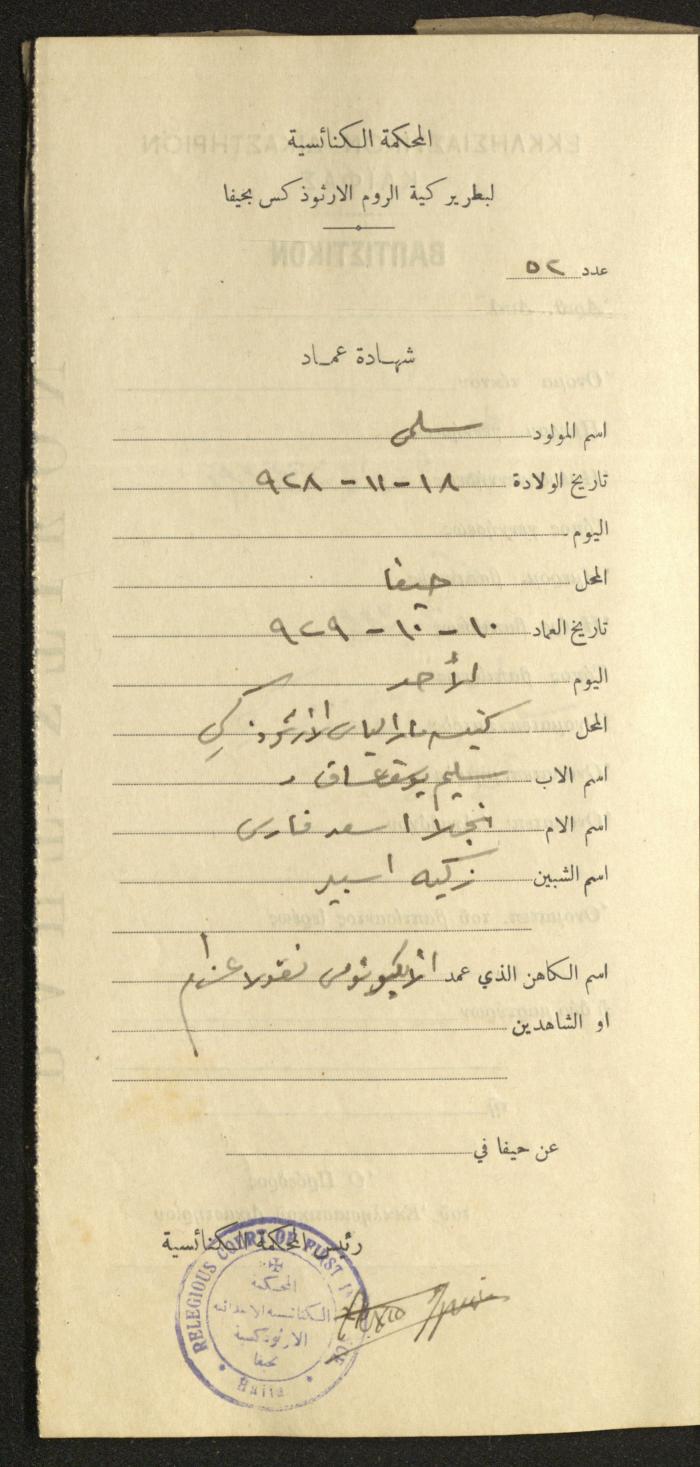 المحكمة الكنائسية
لبطريركية الروم الارثوذكس بحيفا
عدد ٥٢
شهادة عماد
اسم المولود سلمى
تاريخ الولادة ١٨ - ١١ - ٩٢٨
اليوم
المحل حيفا
تاريخ العماد ١٠ - ١٠ - ٩٢٩
اليوم الأحد
المحل كنيسة مار الياس الارثوذكسي
اسم الاب سليم يوسف
اسم الام نجلا اسعد فارس
اسم الشبين زكيه اسبير
اسم الكاهن الذي عمد نقولا
او الشاهدين
عن حيفا في
رئيس المحكمة الكنائسية
RELEGIOUS COURT OF FIRST
المحكمة
الكنائسية الابتدائية
الارثوذكسية
بحيفا
Haifa